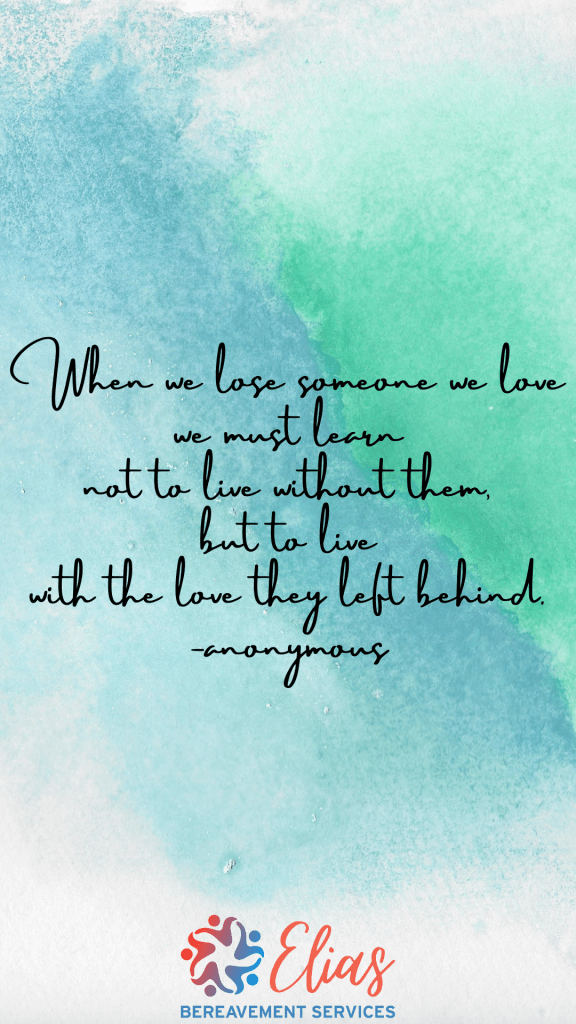 When we lose someone we love
we must learn
not to live without them,
but to live
with the love they left behind.
-anonymous
Elias
BEREAVEMENT SERVICES